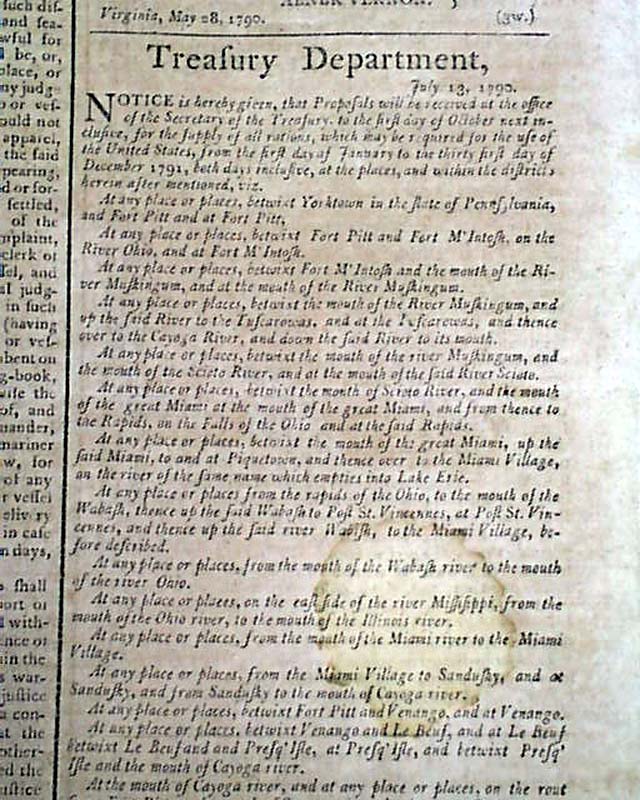 such dis-
and sea-
awful for
be, or,
place, or
ny judg-
p or ves-
ould not
apparel,
the said
pearing,
d or for-
settled,
of the
mplaint,
clerk of
sel, and
al judg-
in such
(having
or ves-
absent on
g-book,
of, and
mander,
mariner
w, for
of any
r vessel
elivery
in case
n days,
shall
port or
with-
ence or
in the
s war-
justice
a con-
at the
other-
ed the
justice
ABNER VERNON.
Virginia, May 28, 1790. (3w.)
Treaſury Department,
July 13, 1790.
NOTICE is hereby given, that Propoſals will be received at the office
of the Secretary of the Treaſury, to the firſt day of October next in-
cluſive, for the ſupply of all rations, which may be required for the uſe of
the United States, from the firſt day of January to the thirty firſt day of
December 1791, both days incluſive, at the places, and within the diſtricts
herein after mentioned, viz.
At any place or places, betwixt Yorktown in the ſtate of Pennſylvania,
and Fort Pitt and at Fort Pitt,
At any place or places, betwixt Fort Pitt and Fort M'Intoſh, on the
River Ohio, and at Fort M'Intoſh.
At any place or places, betwixt Fort M'Intoſh and the mouth of the Ri-
ver Muſkingum, and at the mouth of the River Muſkingum.
At any place or places, betwixt the mouth of the River Muſkingum, and
up the ſaid River to the Tuſcarowas, and at the Tuſcarowas, and thence
over to the Cayoga River, and down the ſaid River to its mouth.
At any place or places, betwixt the mouth of the river Muſkingum, and
the mouth of the Scioto River, and at the mouth of the ſaid River Scioto.
At any place or places, betwixt the mouth of Scioto River, and the mouth
of the great Miami at the mouth of the great Miami, and from thence to
the Rapids, on the Falls of the Ohio and at the ſaid Rapids.
At any place or places, betwixt the mouth of the great Miami, up the
ſaid Miami, to and at Piquetown, and thence over to the Miami Village,
on the river of the ſame name which empties into Lake Erie.
At any place or places from the rapids of the Ohio, to the mouth of the
Wabaſh, thence up the ſaid Wabaſh to Poſt St. Vincennes, at Poſt St. Vin-
cennes, and thence up the ſaid river Wabaſh, to the Miami Village, be-
fore deſcribed.
At any place or places, from the mouth of the Wabaſh river to the mouth
of the river Ohio.
At any place or places, on the eaſt ſide of the river Miſſiſippi, from the
mouth of the Ohio river, to the mouth of the Illinois river.
At any place or places, from the mouth of the Miami river to the Miami
Village.
At any place or places, from the Miami Village to Sanduſky, and at
Sanduſky, and from Sanduſky to the mouth of Cayoga river.
At any place or places, betwixt Fort Pitt and Venango, and at Venango.
At any place or places, betwixt Venango and Le Beuf, and at Le Beuf
betwixt Le Beuf and and Preſq' Iſle, at Preſq' Iſle, and betwixt Preſq'
Iſle and the mouth of Cayoga river.
At the mouth of Cayoga river, and at any place or places, on the rout